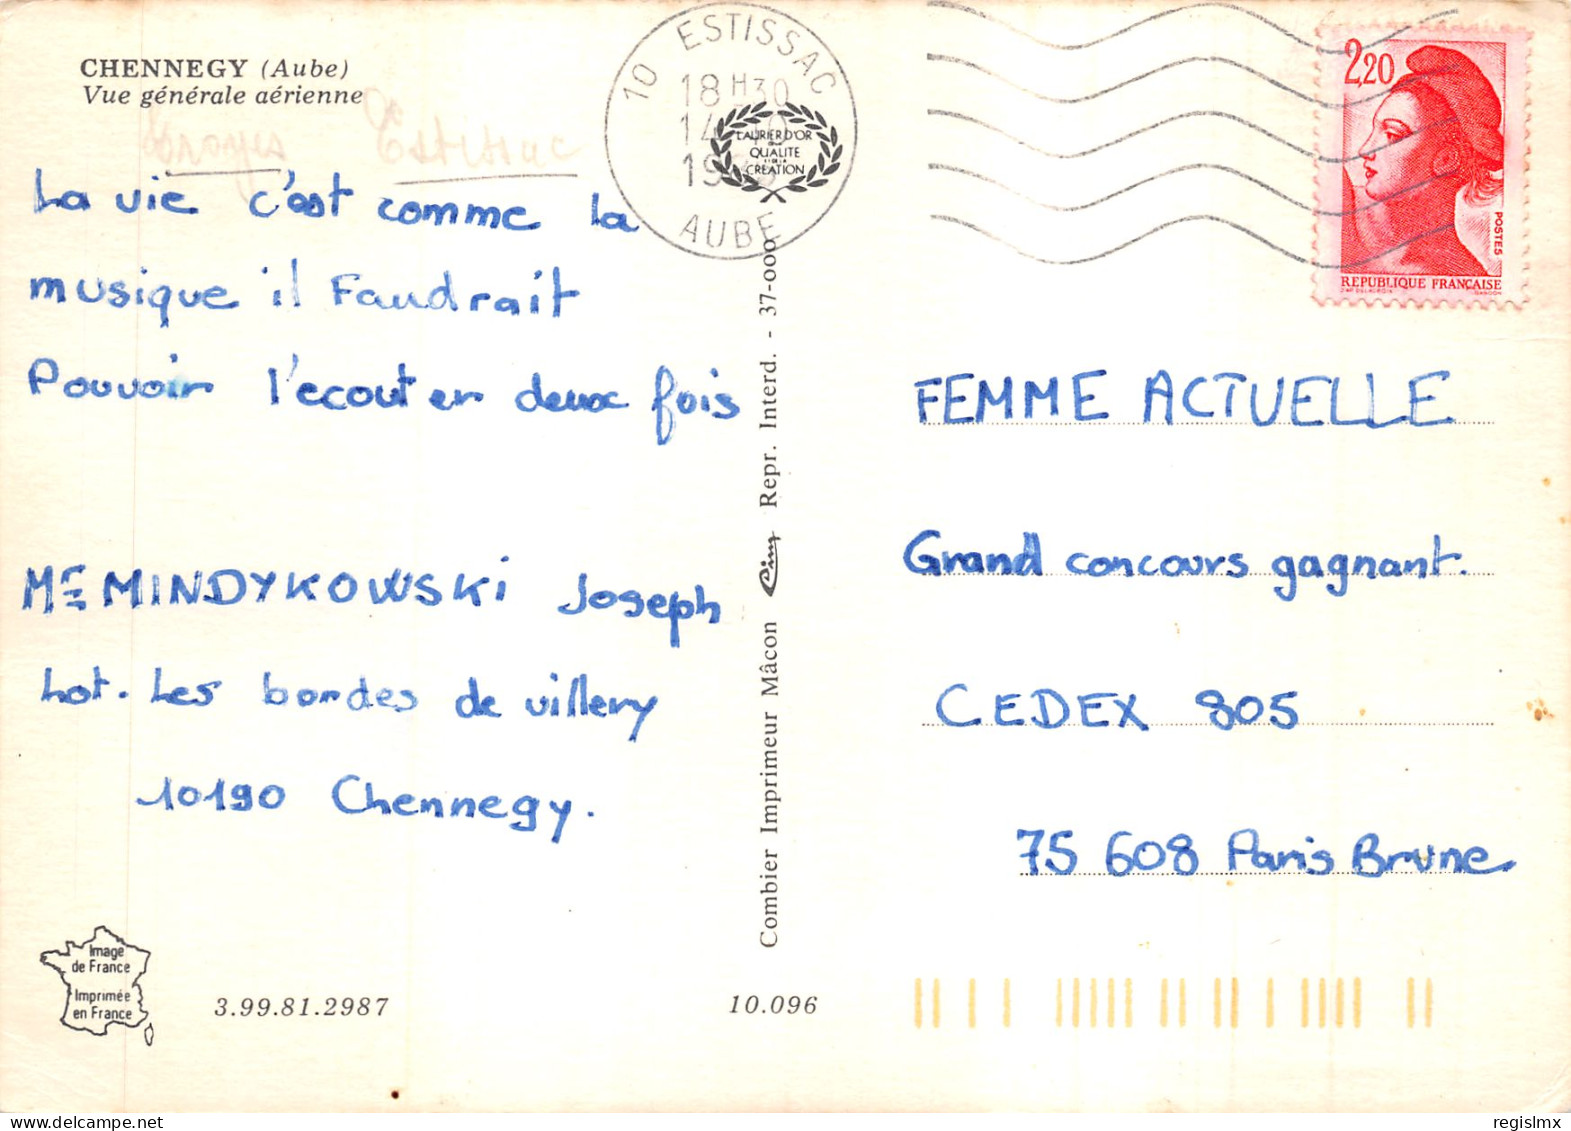 CHENNEGY (Aube)
Vue générale aérienne
Troyes Estissac
La vie c'est comme la
musique il Faudrait
Pouvoir l'ecouter deux fois
MINDYKOWSKI Joseph
Lot. Les bordes de villery
10190 Chennegy.
Image
de France
Imprimée
en France
3.99.81.2987
10.096
Combier Imprimeur Mâcon Cim Repr. Interd. - 37-000
10 ESTISSAC
18H30
19
AUBE
LAURIER D'OR
QUALITE
CREATION
2,20
POSTES
REPUBLIQUE FRANÇAISE
FEMME ACTUELLE
Grand concours gagnant.
CEDEX 805
75 608 Paris Brune
regislmx